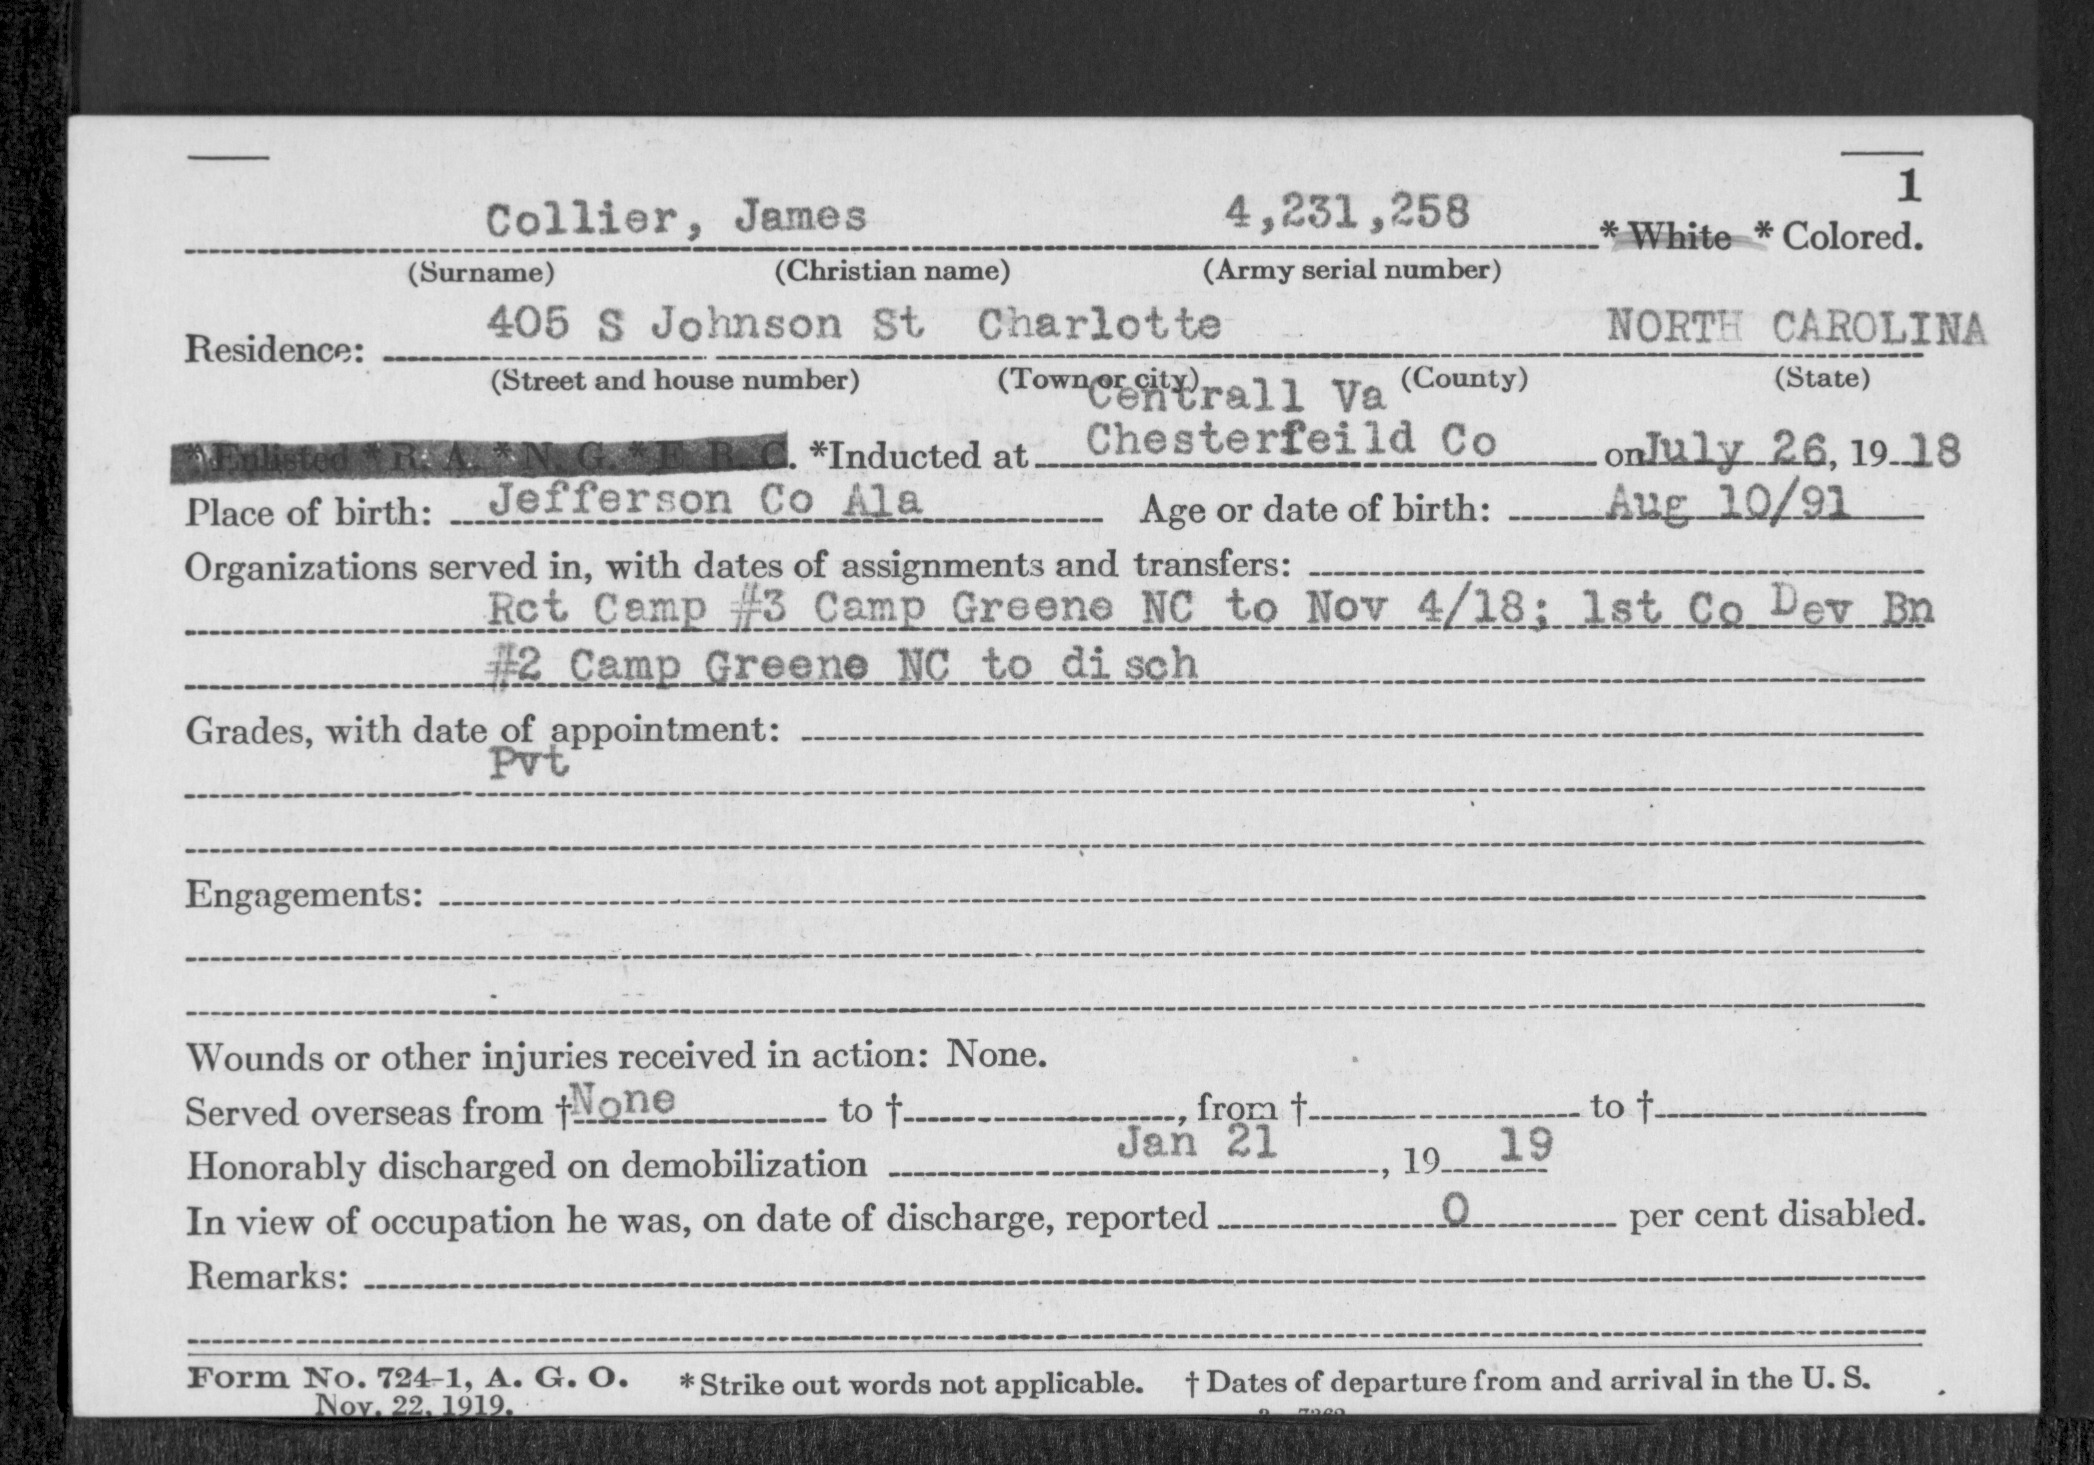 1
Collier, James 4,231,258 * White * Colored.
(Surname) (Christian name) (Army serial number)
Residence: 405 S Johnson St Charlotte NORTH CAROLINA
(Street and house number) (Town or city) (County) (State)
Centrall Va
*Enlisted *R. A. *N. G. *E. R. C. *Inducted at Chesterfeild Co on July 26, 19 18
Place of birth: Jefferson Co Ala Age or date of birth: Aug 10/91
Organizations served in, with dates of assignments and transfers:
Rct Camp #3 Camp Greene NC to Nov 4/18; 1st Co Dev Bn
#2 Camp Greene NC to disch
Grades, with date of appointment:
Pvt
Engagements:
Wounds or other injuries received in action: None.
Served overseas from † None to †, from † to †
Honorably discharged on demobilization Jan 21, 19 19
In view of occupation he was, on date of discharge, reported 0 per cent disabled.
Remarks:
Form No. 724-1, A. G. O. *Strike out words not applicable. † Dates of departure from and arrival in the U. S.
Nov. 22, 1919.